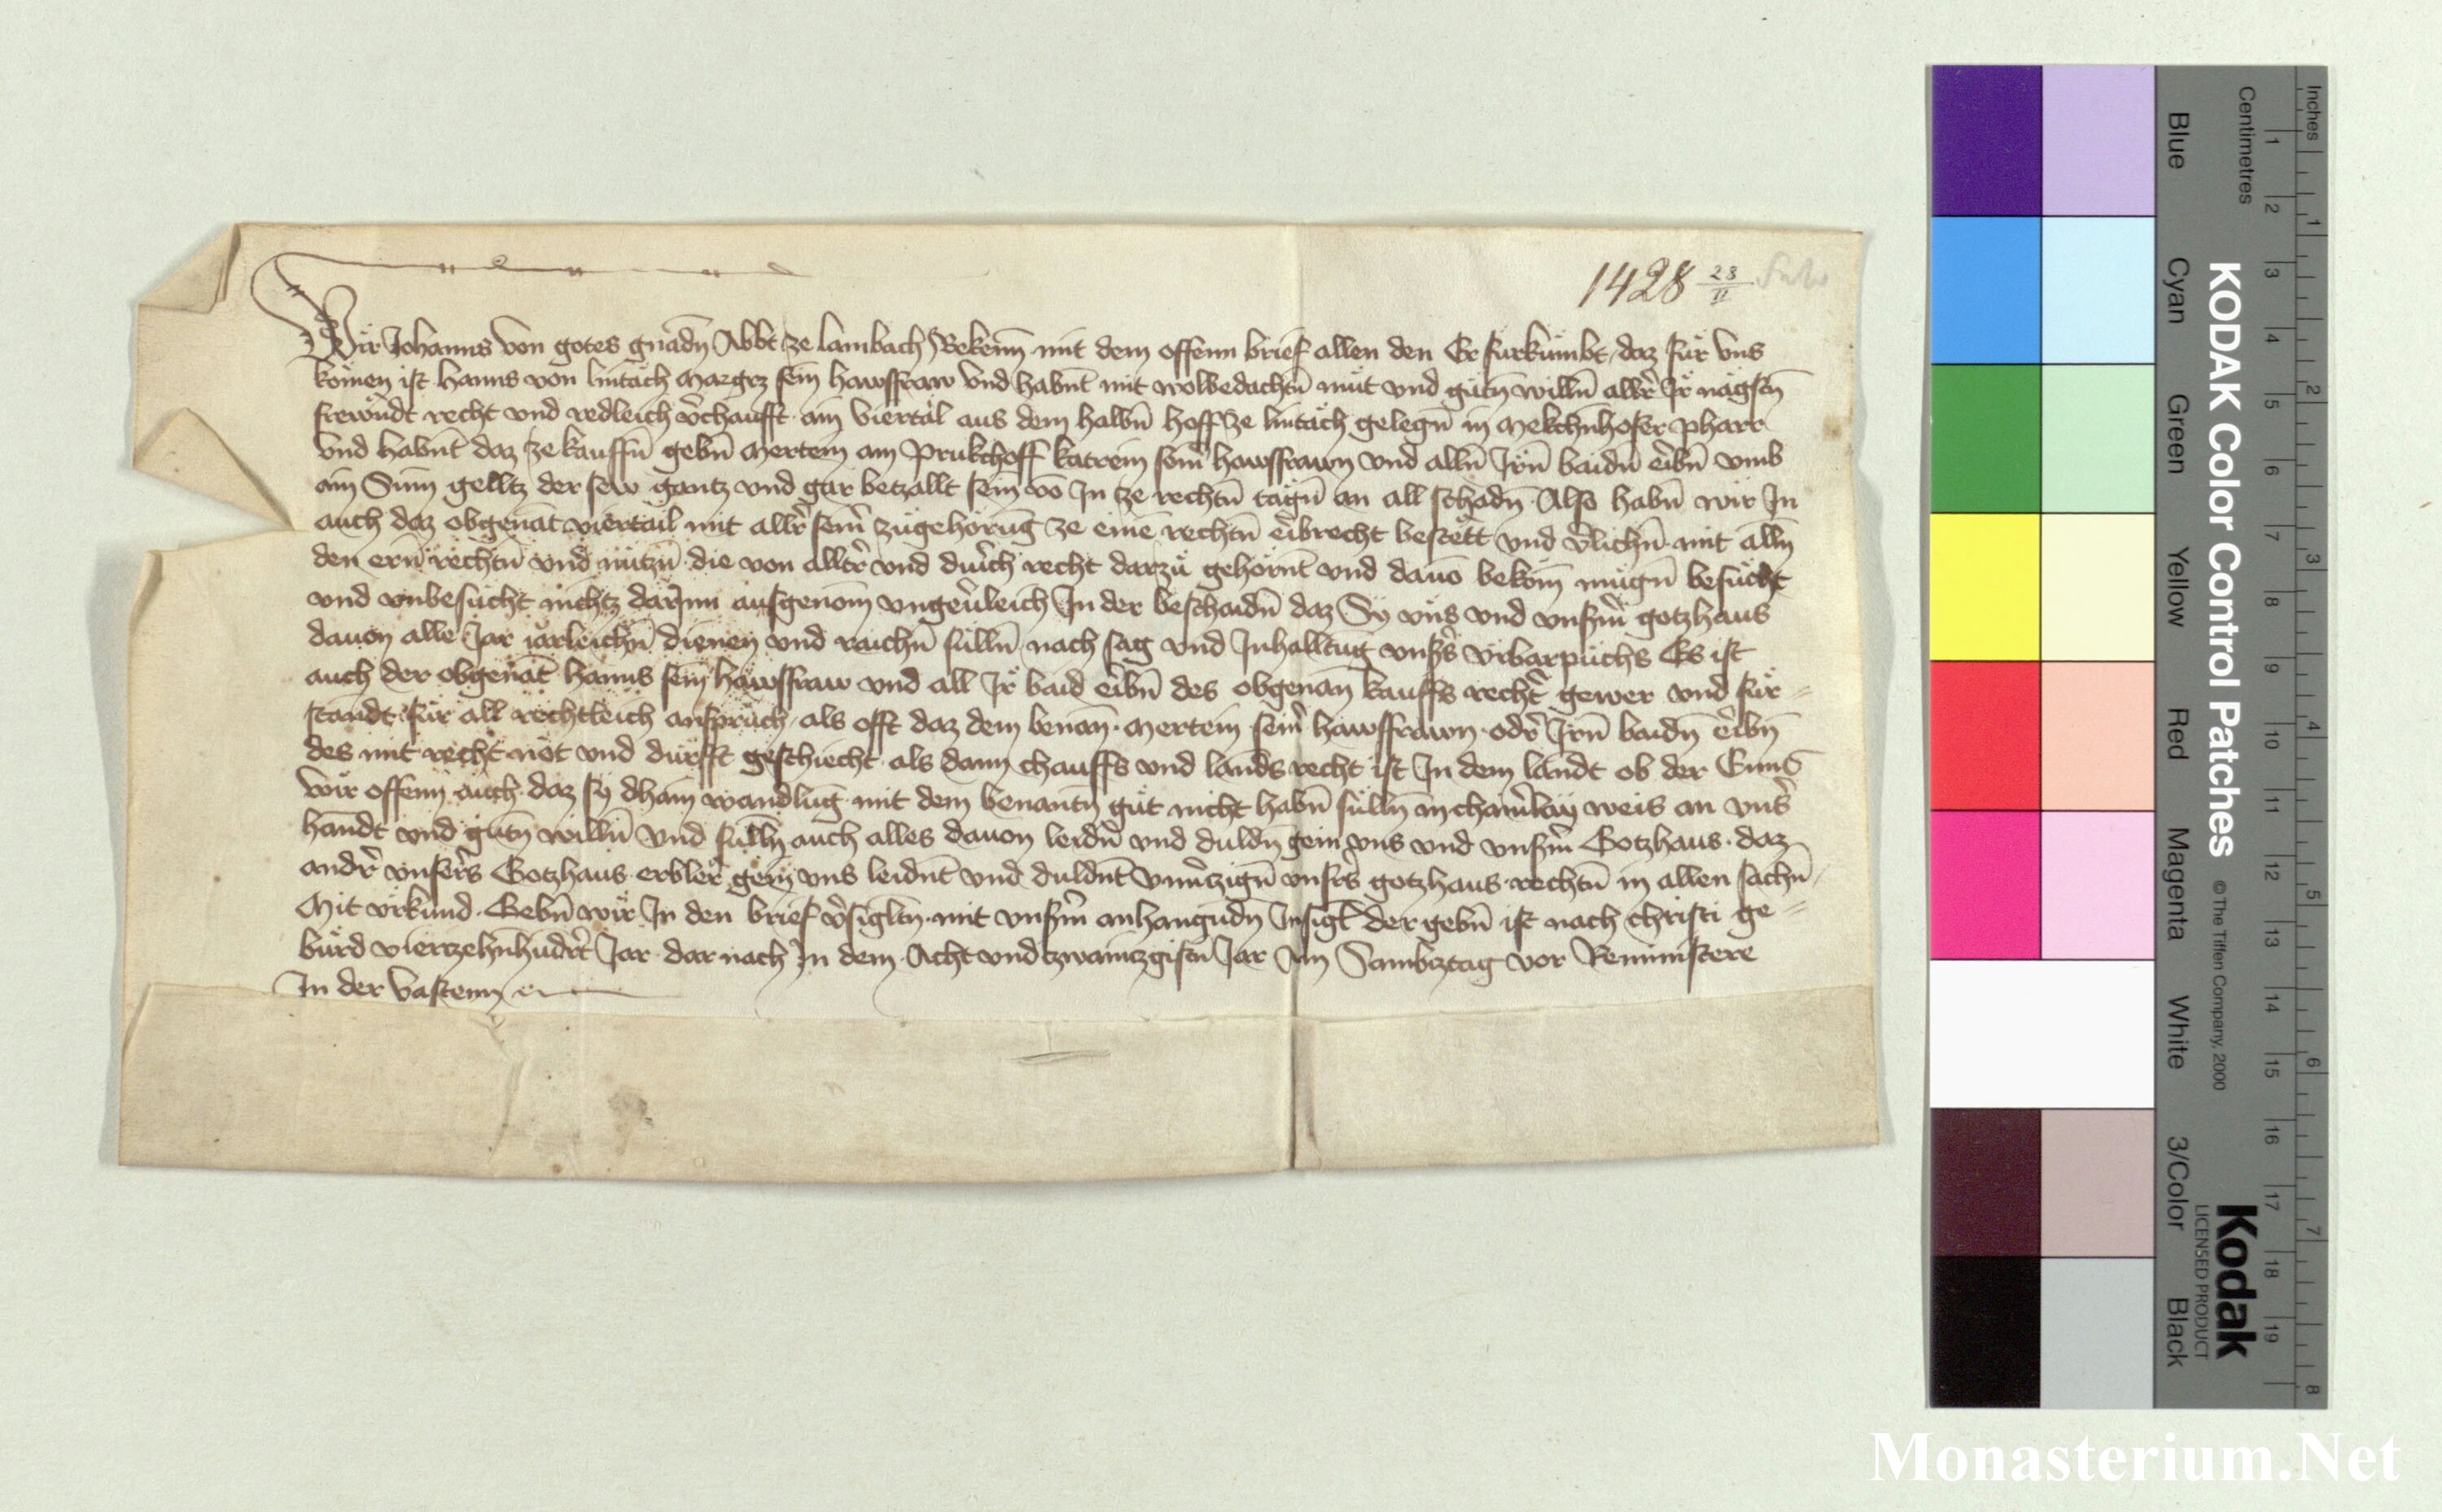 1428 28/II
Wir Johanns von gotes gnadn̄ Abbt ze lambach Bekenn̄ mit dem offenn brief allen den Er fürkümbt daz für vns
komen ist hanns von lintach Margrz sein hawsfraw vnd habnt mit wolbedachtn̄ müt vnd gütn̄ willn̄ allr̄ Ir nagstn̄
frewndt recht vnd redleich v̄chaufft ain viertal aus dem halbn̄ hoff ze lintach gelegn̄ in Mekchnhofer pharr
vnd habnt daz ze kauffn̄ gebn̄ Mertein am Prukchoff katrein sein̄ hawsfrawn vnd alln̄ Irn̄ baidn̄ eribn̄ vmb
ain Sum̄ gelltz der sew gantz vnd gar betzallt sein wo In ze rechtn̄ tagn̄ an all schadn̄ Also habn̄ wir In
auch daz obgenāt viertail mit allr̄ sein̄ zügehörūg ze einē rechtn̄ eribrecht bestett vnd v̄lichn̄ mit alln̄
den ern̄ rechtn̄ vnd nützn̄ die von alltr̄ vnd durich recht darzü gehörnt vnd dauō beköm̄ mügn̄ besücht
vnd vnbesücht nichtz darInn ausgenom̄ vngeu̇leich In der beschaidn̄ daz Sy vns vnd vnsm̄ gotzhaus
dauon alle Jar iarleichn̄ dienen vnd raichn̄ sülln̄ nach sag vnd Inhalltūg vnsrs̄ vrbarpüchs Es ist
auch der obgenāt hanns sein hawsfraw vnd all Ir baid eribn̄ des obgenan̄ kauffs recht̄ gewer vnd für=
standt für all rechtleich ansprüch als offt daz dem benan̄ Mertein sein̄ hawsfrawn odr̄ Irn̄ baidn̄ eribn̄
des mit recht not vnd dürfft geschiecht als dann chauffs vnd landsrecht ist In dem landt ob der Enns
wir offenn auch daz sy dhain wandlūg mit dem benantn̄ güt nicht habn̄ sülln̄ in chainrlay weis an vnsr̄
handt vnd gütn̄ willn̄ vnd sülln̄ auch alles dauon leidn̄ vnd duldn̄ gein vns vnd vnsm̄ Gotzhaus daz
andr̄ vnsers̄ Gotzhaus erbler gein vns leidnt vnd duldnt vnūczign̄ vnsrs̄ gotzhaus rechtn̄ in allen sachn̄
Mit vrkund Gebn̄ wir In den brief v̄sigltn̄ mit vnsm̄ anhangūdn̄ Insigl der gebn̄ ist nach christi ge=
bürd viertzehnhūdrt̄ Jar dar nach In dem Acht vnd zwainczgistn̄ Jar Am Sambztag vor Reministere
In der vastenn
Inches
Centimetres
1 2 3 4 5 6 7 8
1 2 3 4 5 6 7 8 9 10 11 12 13 14 15 16 17 18 19
KODAK Color Control Patches © The Tiffen Company, 2000 Kodak
LICENSED PRODUCT
Blue Cyan Green Yellow Red Magenta White 3/Color Black
Monasterium.Net